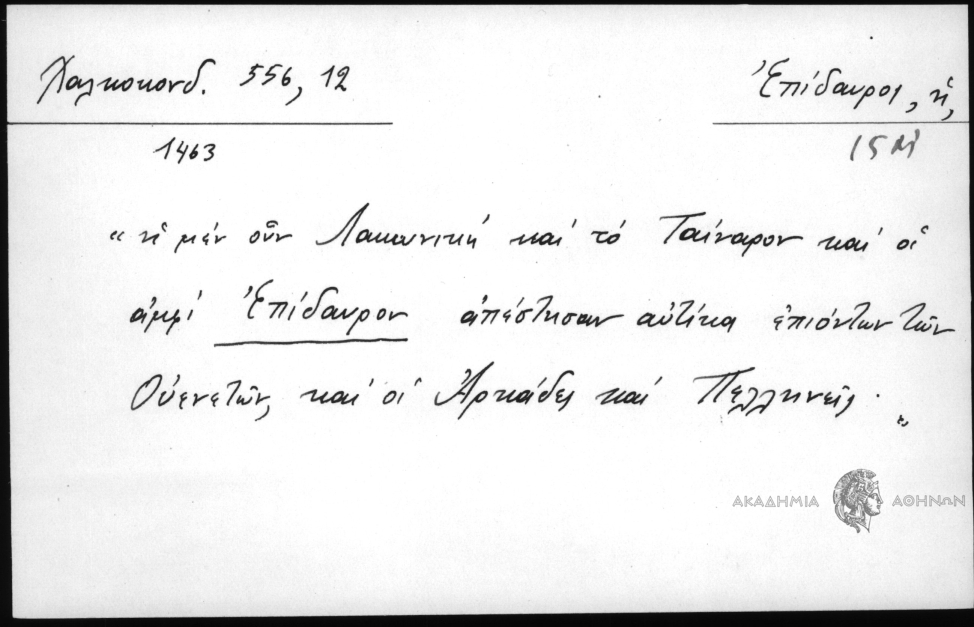 Χαλκοκονδ. 556, 12
Ἐπίδαυρος, ἡ,
1463
15 Μ
« ἡ μὲν οὖν Λακωνικὴ καὶ τὸ Ταίναρον καὶ οἱ
ἀμφὶ Ἐπίδαυρον ἀπέστησαν αὐτίκα ἐπιόντων τῶν
Οὐενετῶν, καὶ οἱ Ἀρκάδες καὶ Πελληνεῖς. »
ΑΚΑΔΗΜΙΑ ΑΘΗΝΩΝ